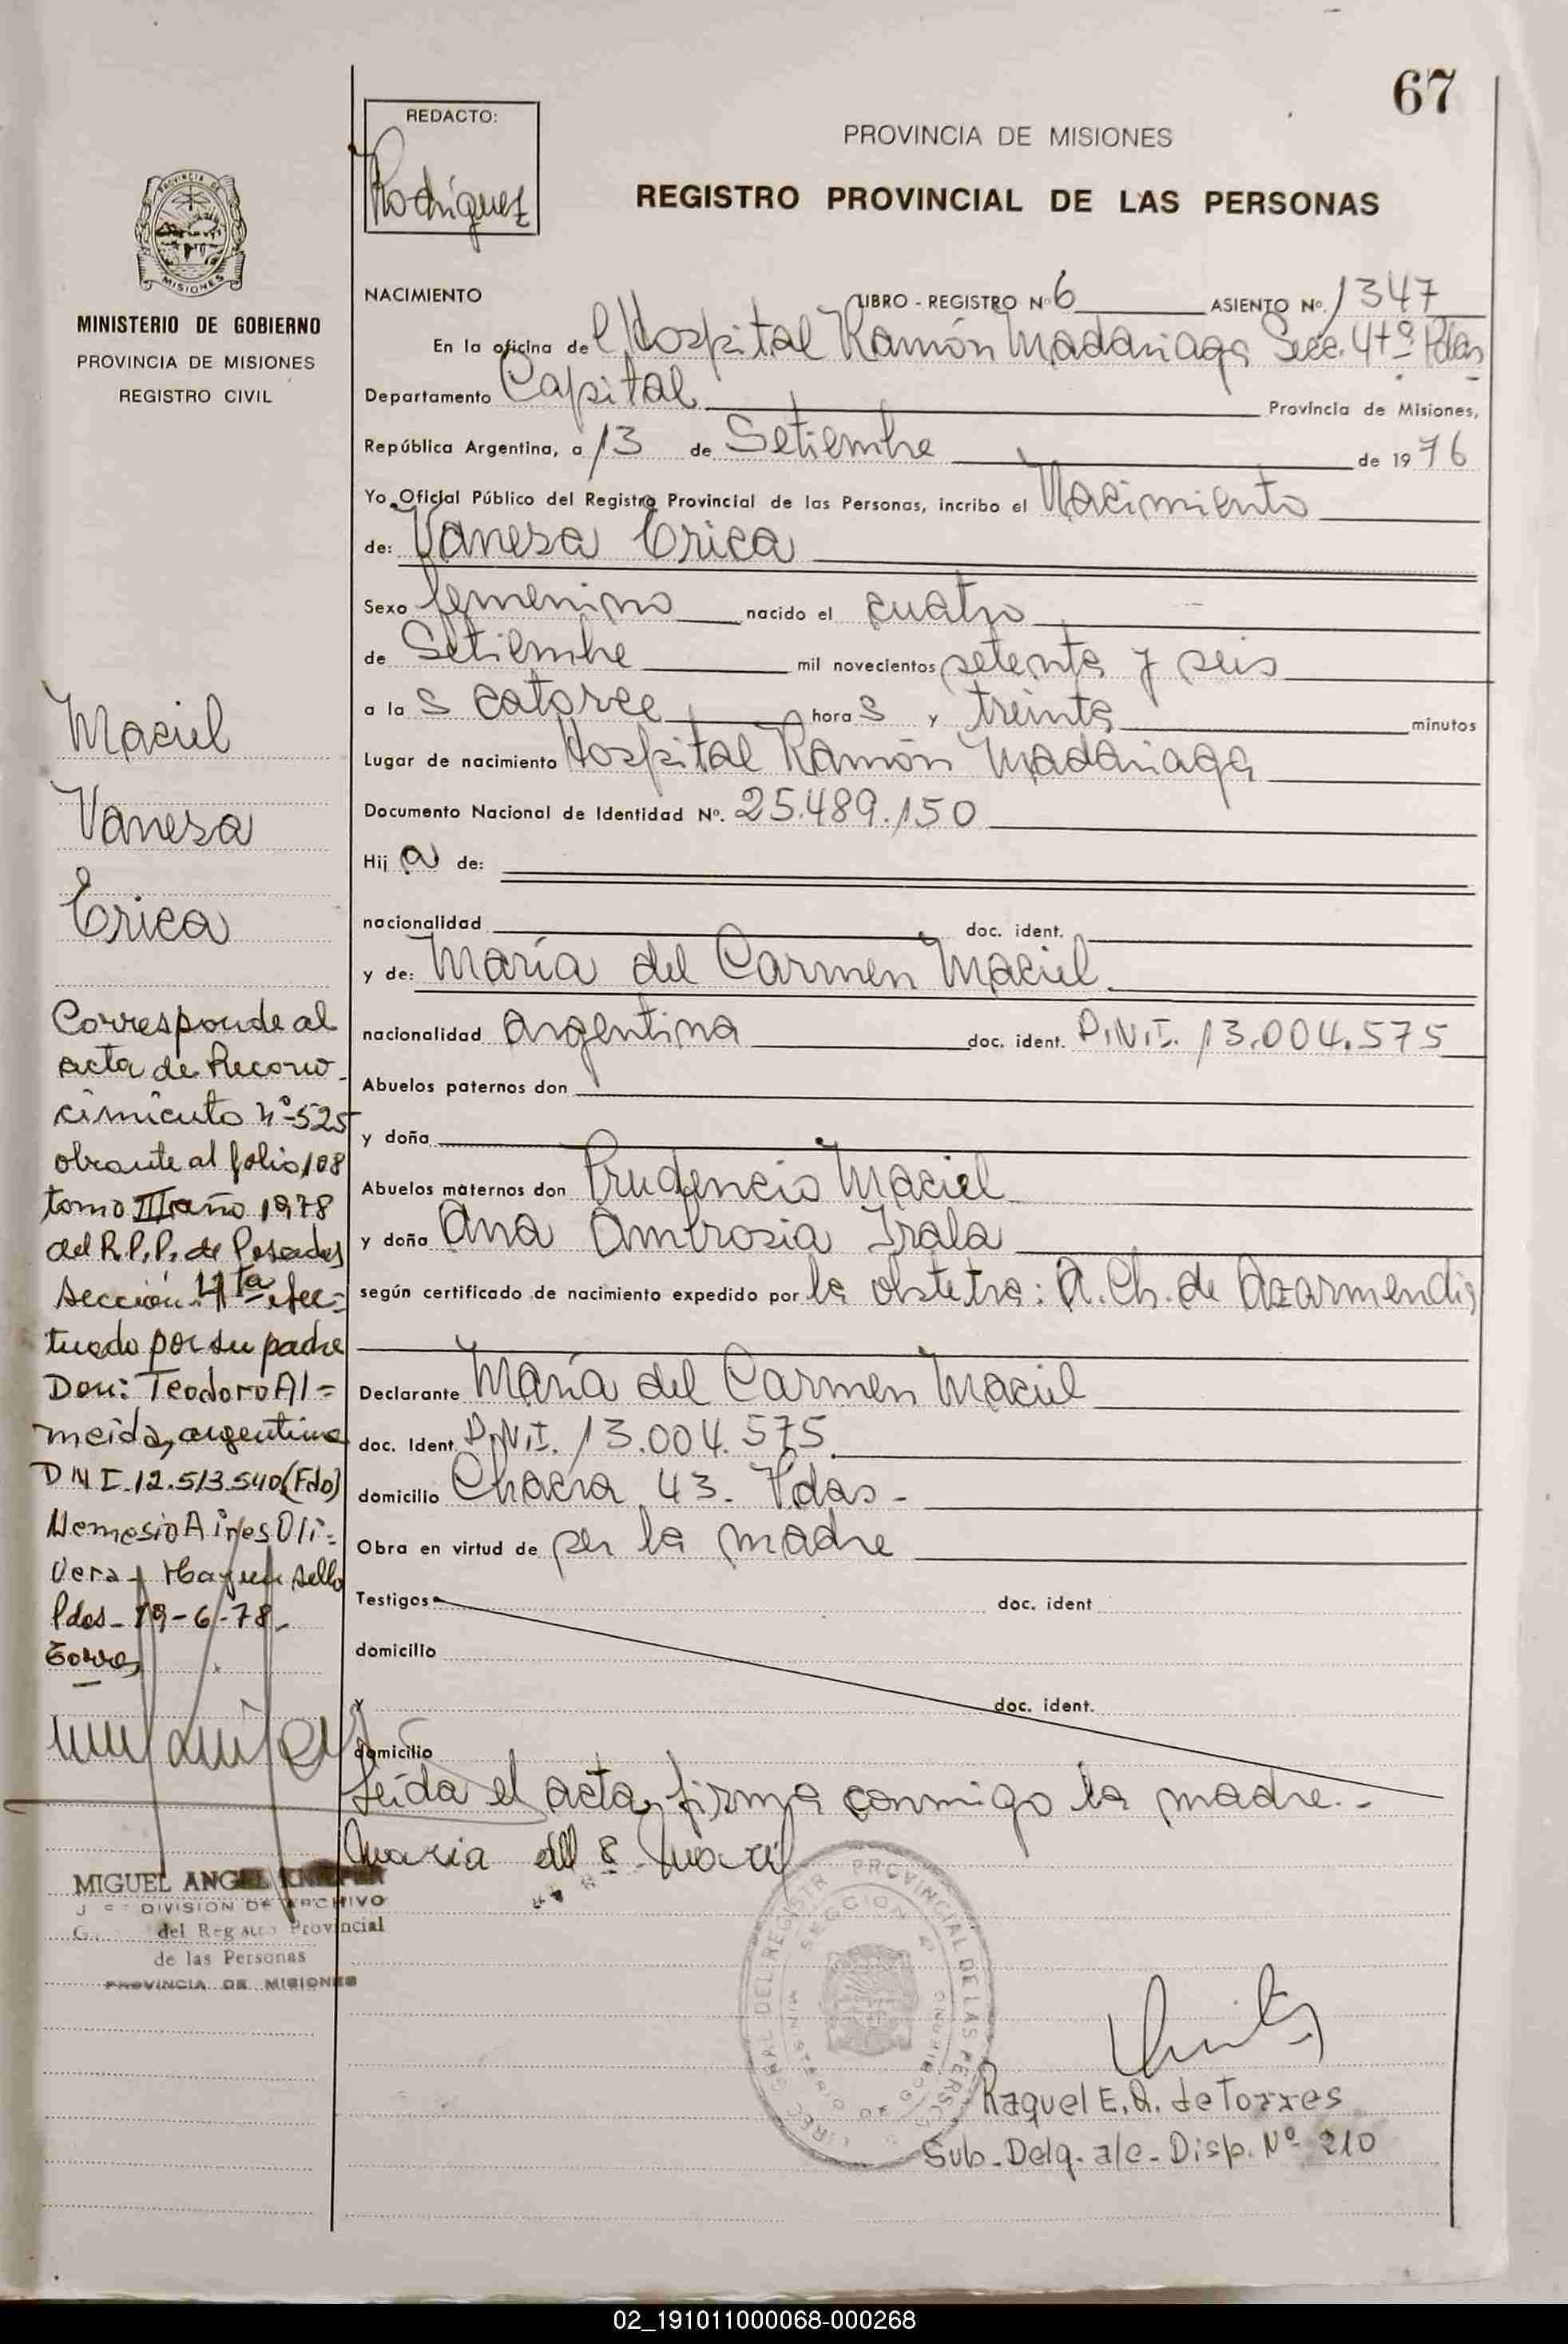 67
REDACTO:
Rodríguez
PROVINCIA DE MISIONES
REGISTRO PROVINCIAL DE LAS PERSONAS
PROVINCIA DE
MISIONES
MINISTERIO DE GOBIERNO
PROVINCIA DE MISIONES
REGISTRO CIVIL
NACIMIENTO LIBRO - REGISTRO Nº 6 ASIENTO Nº. 1347
En la oficina de l Hospital Ramón Madariaga Secc. 4tª Pdas
Departamento Capital Provincia de Misiones,
República Argentina, a 13 de Setiembre de 1976
Yo Oficial Público del Registro Provincial de las Personas, incribo el Nacimiento
de: Vanesa Erica
Sexo femenino nacido el cuatro
de Setiembre mil novecientos setenta y seis
a la s catorce hora s y treinta minutos
Lugar de nacimiento Hospital Ramón Madariaga
Documento Nacional de Identidad Nº. 25.489.150
Hij a de:
nacionalidad doc. ident.
y de: María del Carmen Maciel
nacionalidad argentina doc. ident. D.N.I. 13.004.575
Abuelos paternos don
y doña
Abuelos maternos don Prudencio Maciel
y doña Ana Ambrosia Irala
según certificado de nacimiento expedido por la obstetra: A. Ch. de Azarmendia
Declarante María del Carmen Maciel
doc. Ident. D.N.I. 13.004.575
domicilio Chacra 43. Pdas -
Obra en virtud de ser la madre
Testigos doc. ident
domicilio
y doc. ident.
domicilio
Leida el acta, firma conmigo la madre.-
Maria del
Maciel
Vanesa
Erica
Corresponde al
acta de Recono-
cimiento nº 525
obrante al folio 108
tomo III año 1978
del R.P.P. de Posadas
sección 4ta efec=
tuado por su padre
Don: Teodoro Al=
meida, argentino
DNI.12.513.540(Fdo)
Nemesio Aires Oli=
vera - Hay un sello
Pdas - 19-6-78.
Torres
MIGUEL ANGEL
DIVISION DE ARCHIVO
del Registro Provincial
de las Personas
PROVINCIA DE MISIONES
PROVINCIAL DE LAS PERSO
SECCION 4ª
MINISTERIO DE GOBIERNO
Raquel E. R. de Torres
Sub-Delg. a/c - Disp. Nº 210
02_191011000068-000268